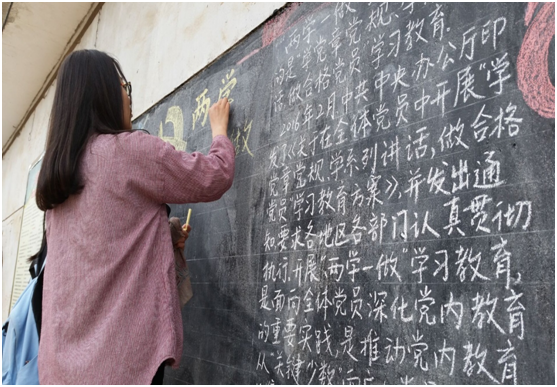 两学
做
两学一做
的是“学党章党规、学
话,做合格党员”学习教育.
2016年2月中共中央办公厅印
发了《关于在全体党员中开展“学
党章党规、学系列讲话,做合格
党员”学习教育方案》,并发出通
知要求各地区各部门认真贯彻
执行.开展“两学一做”学习教育,
是面向全体党员深化党内教育
的重要实践,是推动党内教育
从“关键少数”向